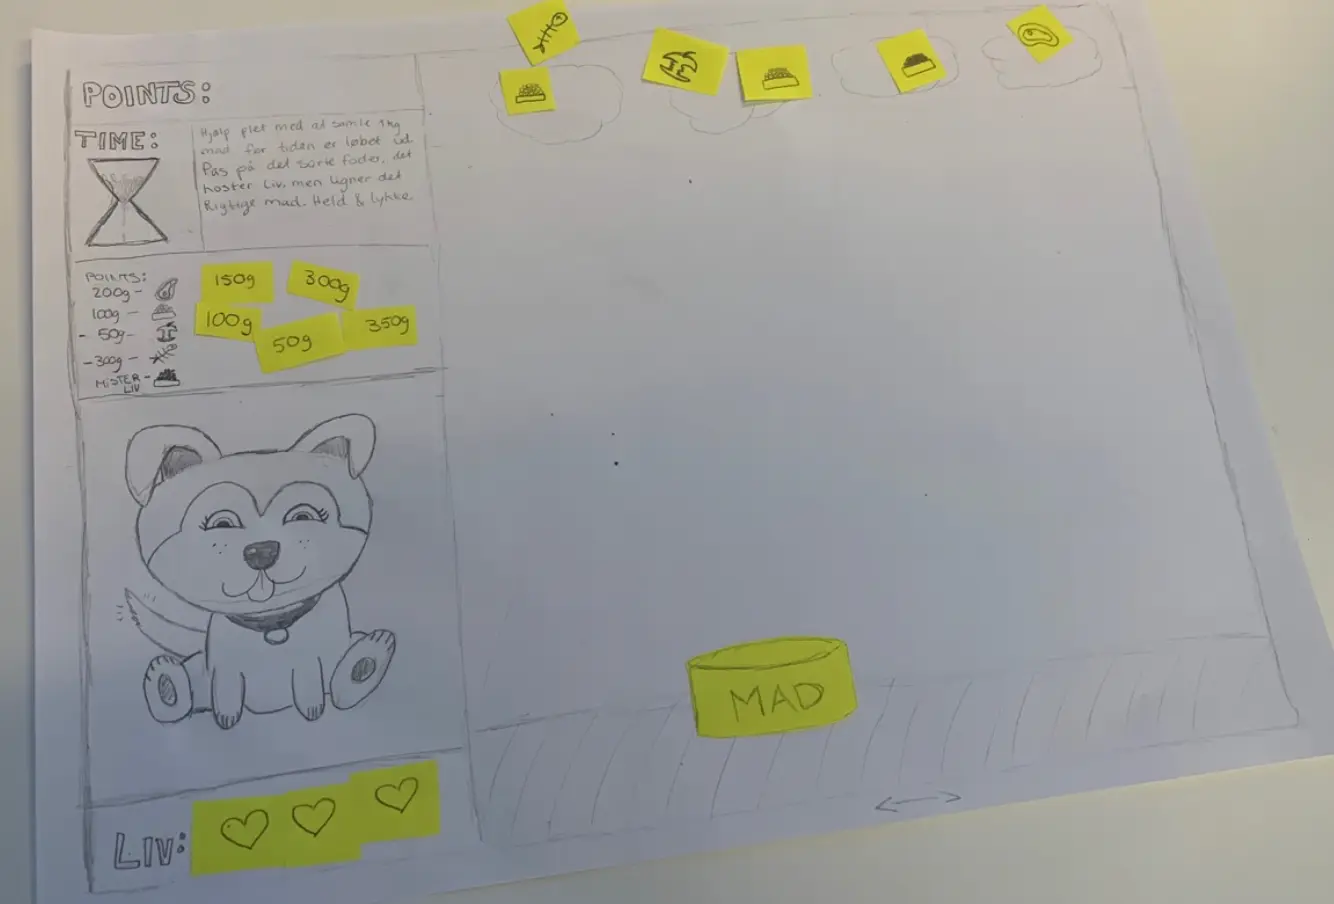 POINTS:
TIME:
Hjælp fiet med at samle 1kg
mad før tiden er løbet ud.
Pas på det sorte foder, det
koster Liv, men ligner det
Rigtige mad. Held & Lykke.
POINTS:
200g -
100g -
- 50g -
- 300g -
MISTER -
LIV
150g
300g
100g
50g
350g
MAD
LIV: